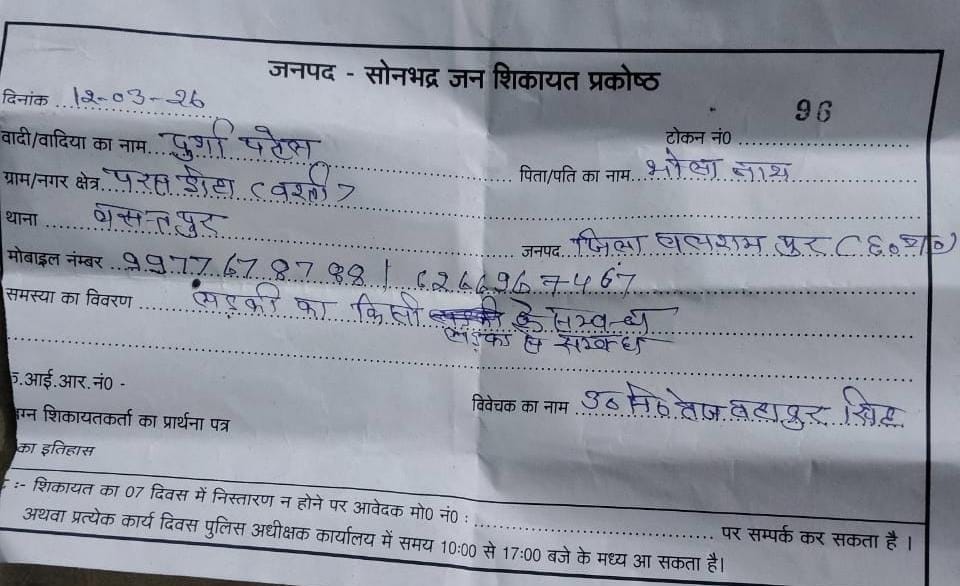 जनपद - सोनभद्र जन शिकायत प्रकोष्ठ
दिनांक 12-03-26
96
टोकन नं0
वादी/वादिया का नाम दुर्गा पटेल
पिता/पति का नाम भोला नाथ
ग्राम/नगर क्षेत्र परस डीहा (वस्ती)
थाना बसन्तपुर
जनपद जिला बलराम पुर (छ०ग०)
मोबाइल नंम्बर 9977678788 | 6266967467
समस्या का विवरण लड़की का किसी के सम्बन्ध
लड़का से सम्बन्ध
.आई.आर.नं0 -
विवेचक का नाम उ०नि० तेज बहादुर सिंह
ग्न शिकायतकर्ता का प्रार्थना पत्र
का इतिहास
:- शिकायत का 07 दिवस में निस्तारण न होने पर आवेदक मो0 नं0 : पर सम्पर्क कर सकता है ।
अथवा प्रत्येक कार्य दिवस पुलिस अधीक्षक कार्यालय में समय 10:00 से 17:00 बजे के मध्य आ सकता है।